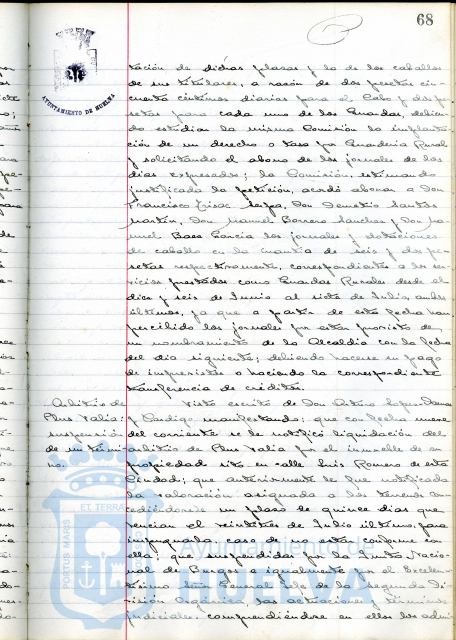 68
AYUNTAMIENTO DE HUELVA
tación de dichas plazas y la de los caballos
de sus titulares, a razón de dos pesetas cin
cuenta céntimos diarias para el Cabo y dos pe
setas para cada uno de los Guardas, debien
do estudiar la misma Comisión la implanta
ción de un derecho o tasa por Guardería Rural
y solicitando el abono de los jornales de los
días expresados; la Comisión, estimando
justificada la petición, acordó abonar a Don
Francisco Don Demetrio Santos
Martín, Don Manuel Borrero Sanchez y Don Ma
nuel Baez García los jornales y dotaciones
de caballo en la cuantía de seis y dos pe
setas respectivamente, correspondientes a los ser
vicios prestados como Guardas Rurales desde el
diez y seis de Junio al siete de Julio, ambos
últimos, ya que a partir de esta fecha han
percibido los jornales por estar provisto de
un nombramiento de la Alcaldía con la fecha
del día siguiente; debiendo hacerse en pago
de imprevistos o haciendo la correspondiente
transferencia de créditos.
Arbitrio de
Plus Valía:
suspensión
de un térmi-
no.
Visto escrito de Don Arturo Lopez Damas
y manifestando: que con fecha nueve
del corriente se le notificó liquidación del
arbitrio de Plus Valía por el inmueble de su
propiedad sito en calle Luis Romero de esta
Ciudad; que anteriormente le fue notificada
la valoración asignada a los terrenos con
cediéndole un plazo de quince días que
vencían el veintitres de Julio último, para
impugnarla caso de no estar conforme con
ella; que suspendidos por la Junta Nacio
nal de Burgos e igualmente por el Excelen
tísimo Señor General Jefe de la Segunda Di
visión Orgánica, las actuaciones y términos
judiciales, comprendiéndose en ellos los admi
PORTUS MARIS ET TERRAE
Ayuntamiento de
HUELVA